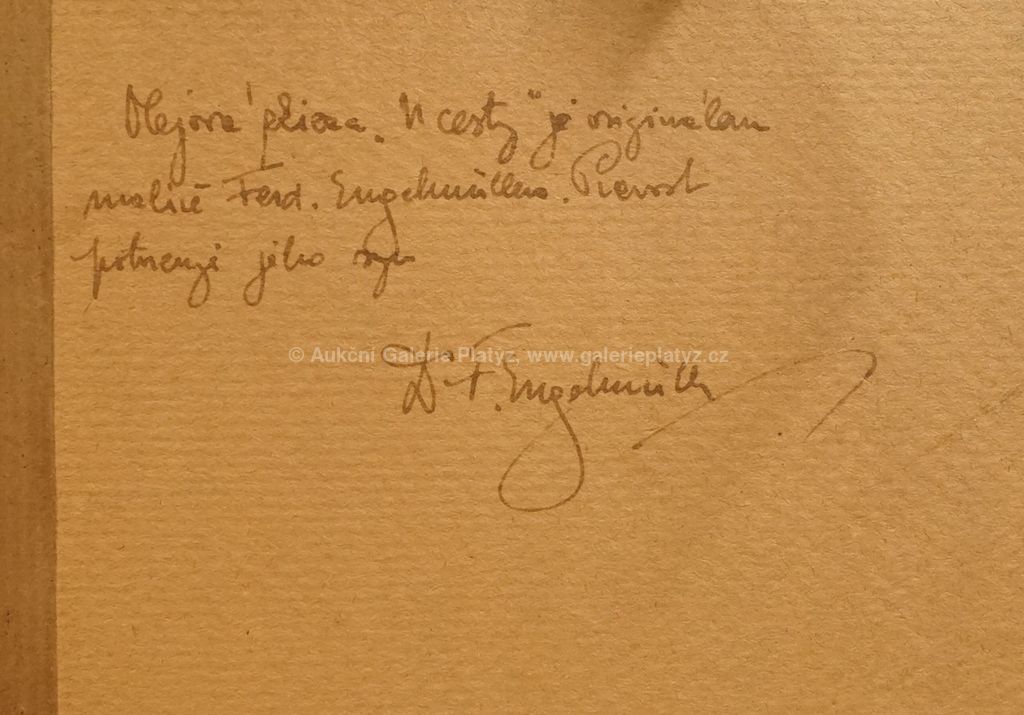 Olejová práce „U cesty" je originálem
malíře Ferd. Engelmüllera. Pravost
potvrzuje jeho syn
© Aukční Galerie Platýz, www.galerieplatyz.cz
Dr. F. Engelmüller